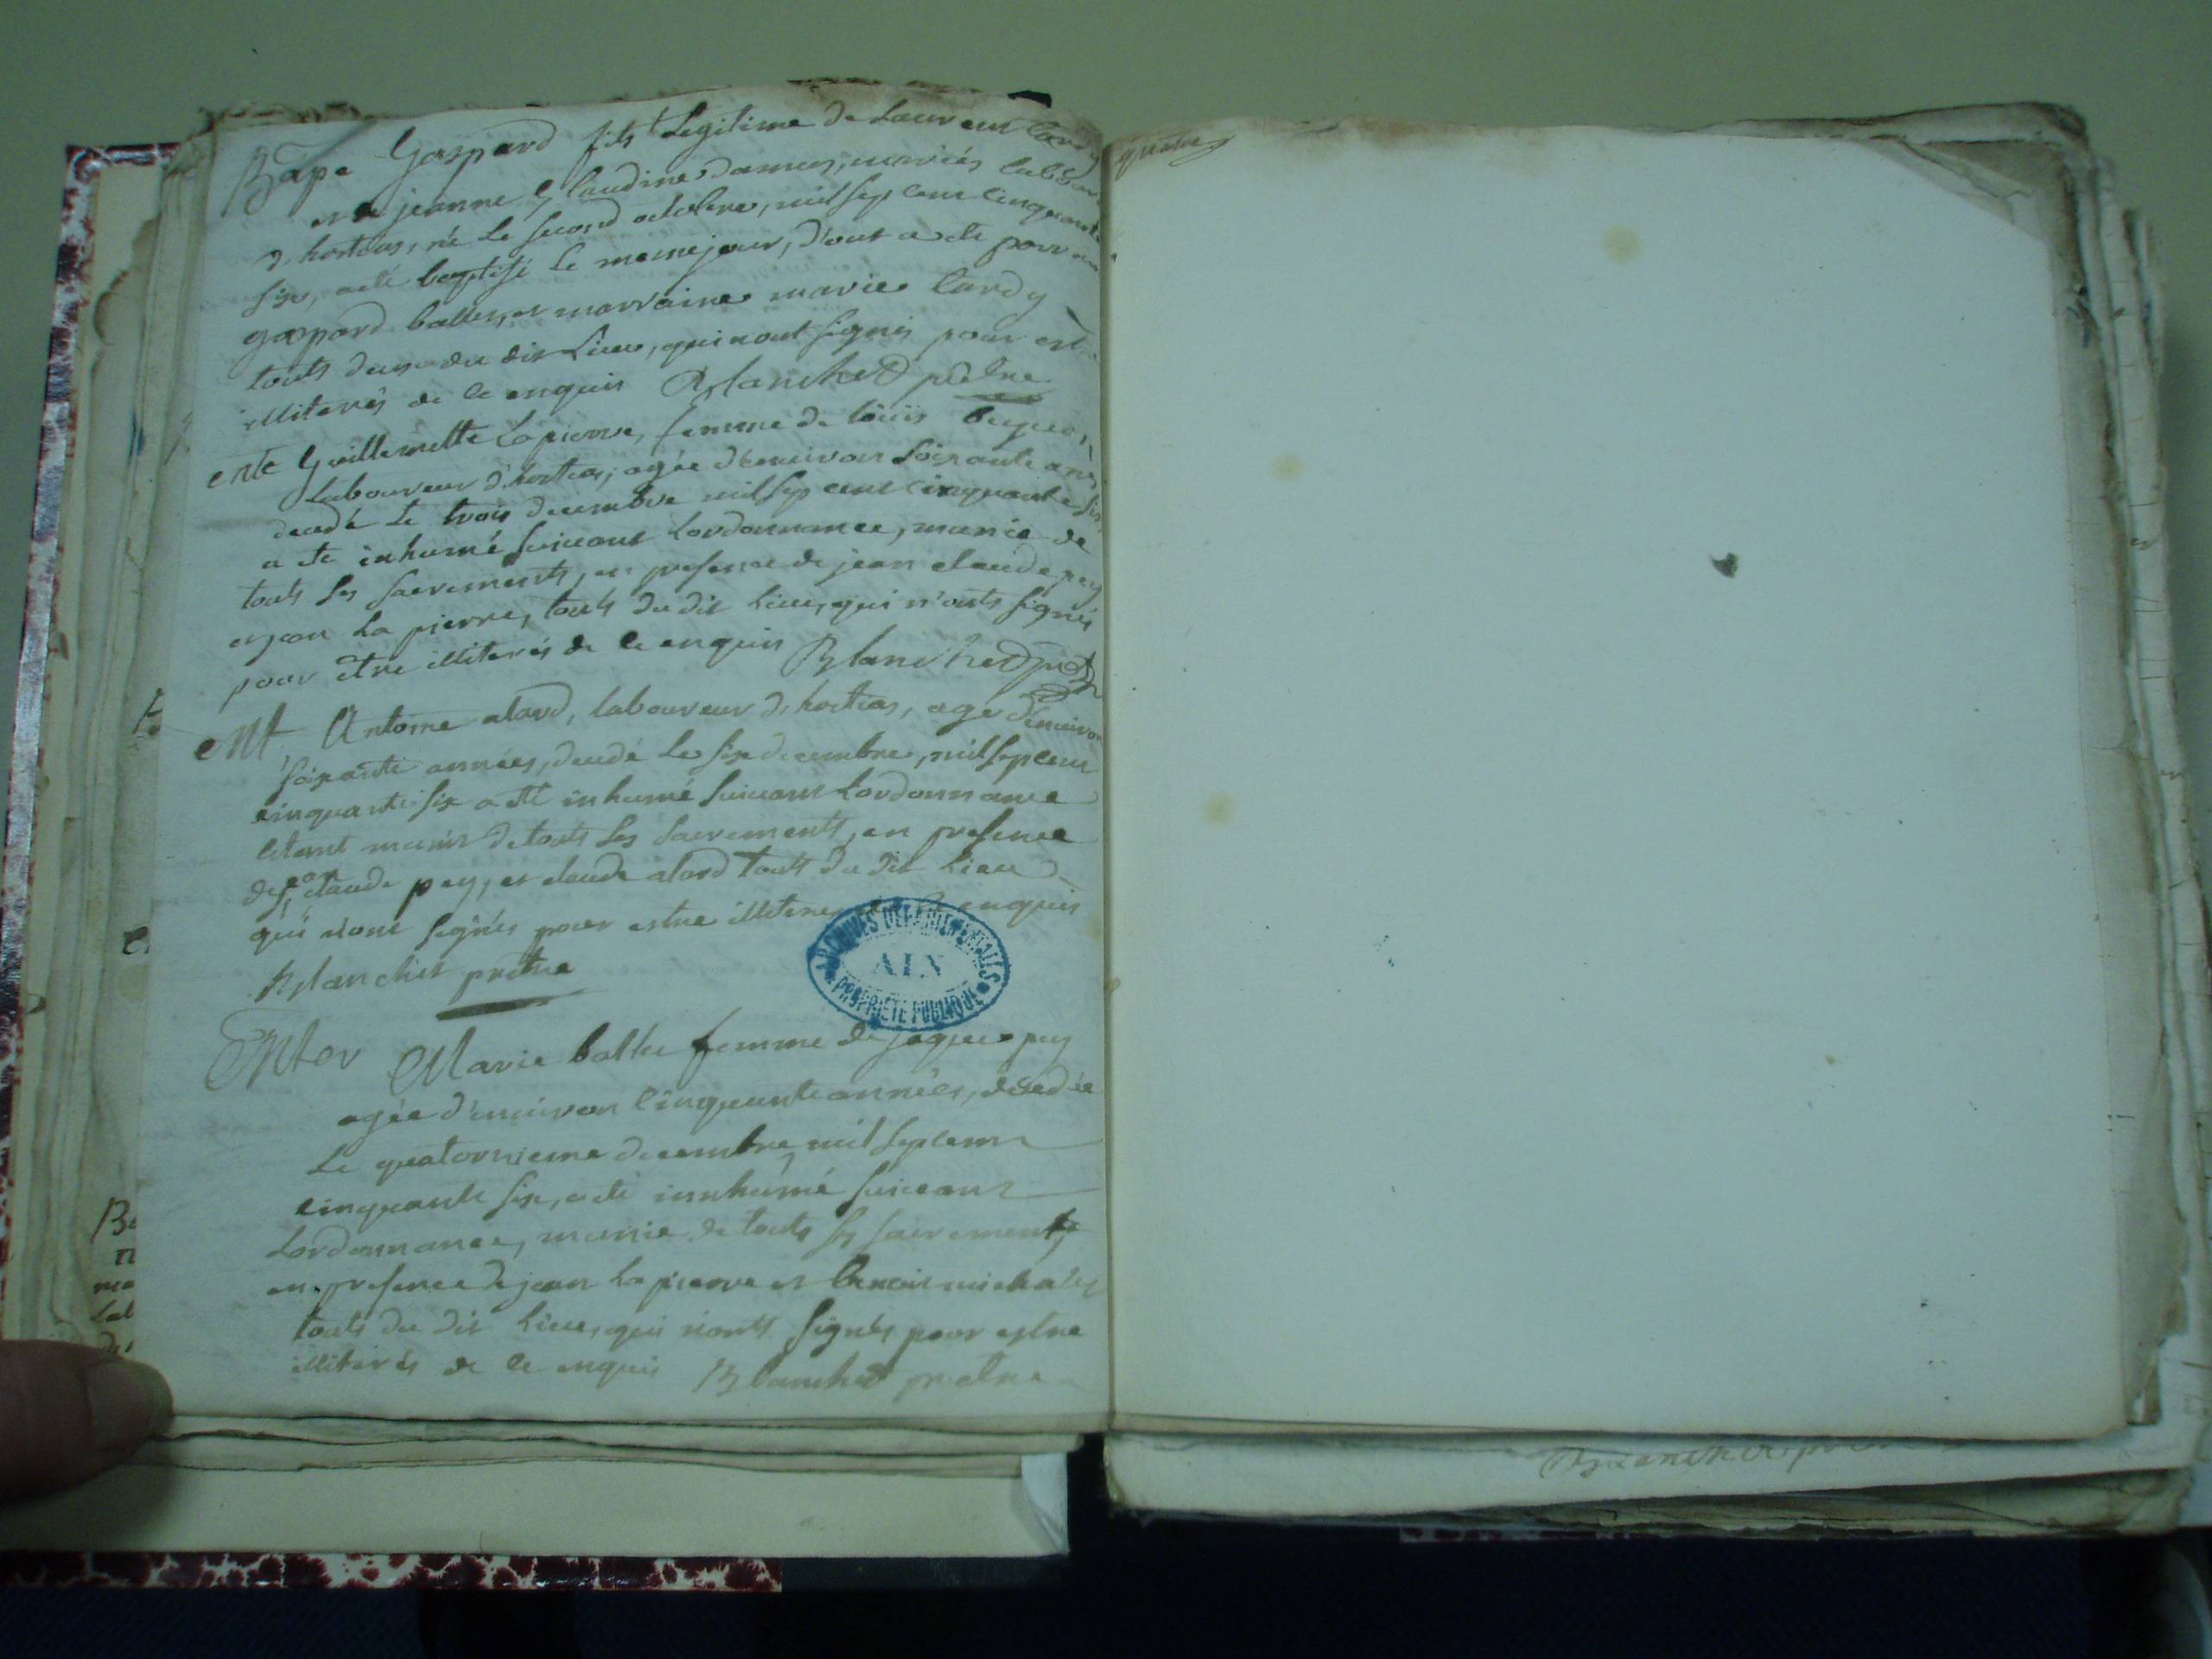 Bapt Gaspard fils Legitime de Laurent Cardy
et de jeanne Claudine mariés
d'hostias, né le second octobre, mil sept cent cinquante
six, a eté baptisé le meme jour, d'ont a eté parr
gaspard ballet, et marraine marie Cardy
touts deux du dit Lieu, qui n'ont signés pour estre
illiterés de ce enquis Blanchet prêtre
ente Guillemette Lapierre, femme de loüis
Laboureur d'hostias, agée d'environ soixante ans,
decedé le trois decembre mil sept cent cinquante six
a eté inhumé suivant Lordonnance, munie de
touts ses sacrements, en presence de jean claude pey
et jean La pierre, touts du dit Lieu, qui n'onts signés
pour être illiterés de ce enquis Blanchet
ent Antoine alard, laboureur d'hostias, age d'environ
soixante années, decedé le six decembre, mil sept cent
cinquante six a eté inhumé suivant Lordonnance
etant munis de touts ses sacrements, en presence
de jean claude pey, et claude alard touts du dit Lieu
qui n'ont signés pour estre illiterés enquis
Blanchet prêtre
ARCHIVES DEPARTEMENTALES
AIN
PROPRIETE PUBLIQUE
Enter Marie ballet femme de jaques pey
agée d'environ cinquante années, decedée
Le quatorzieme decembre mil sept cent
cinquante six, a eté innhumé suivant
Lordonnance, munie de touts ses sacrements,
en presence de jean La pierre et
touts du dit Lieu, qui n'onts signés pour estre
illiterés de ce enquis Blanchet prêtre